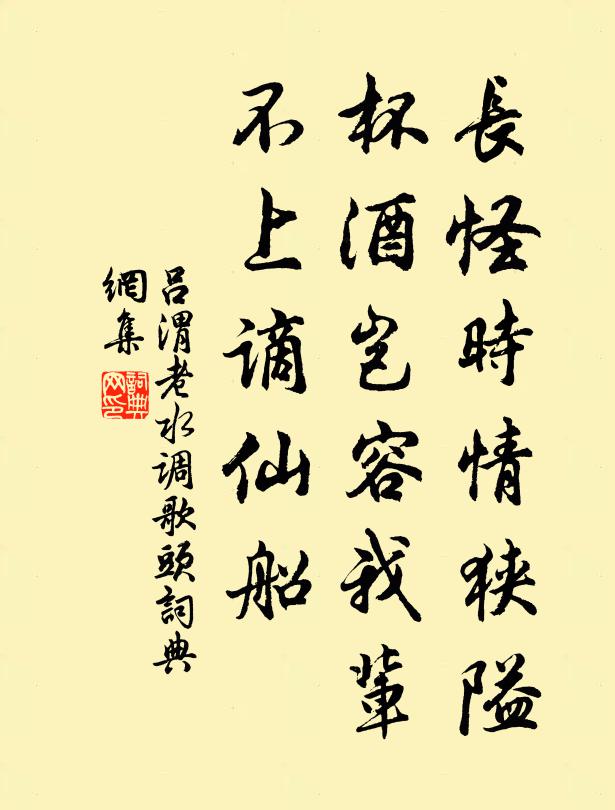 長怪時情狹隘
杯酒豈容我輩
不上謫仙船
吕渭老水调歌頭詞典
網集
詞典网印